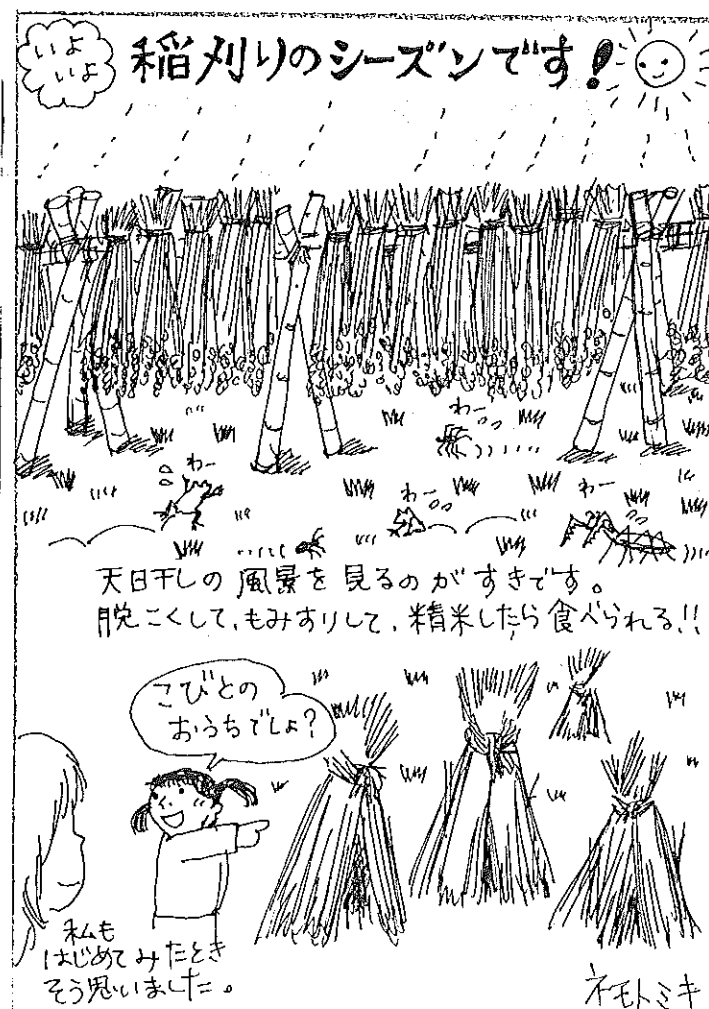 いよ
いよ
稲刈りのシーズンです!
わー
わー
わー
わー
天日干しの風景を見るのがすきです。
脱こくして、もみすりして、精米したら食べられる!!
こびとの
おうちでしょ?
私も
はじめてみたとき
そう思いました。
ネモトミキ